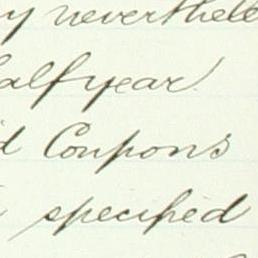 y neverthele
half year
d Coupons
specified